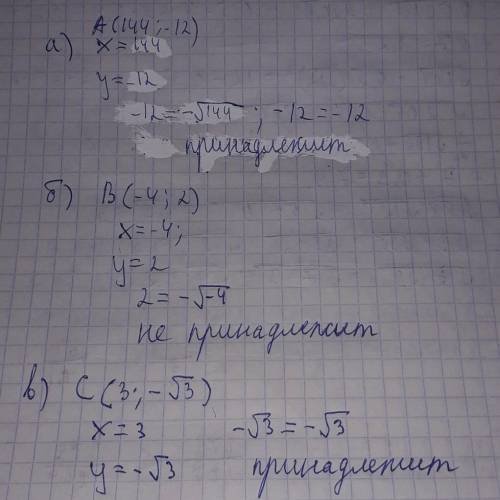 а) А(144; -12)
x = 144
y = -12
-12 = -√144 ; -12 = -12
принадлежит
б) В(-4; 2)
x = -4;
y = 2
2 = -√-4
не принадлежит
в) С(3; -√3)
x = 3 -√3 = -√3
y = -√3 принадлежит